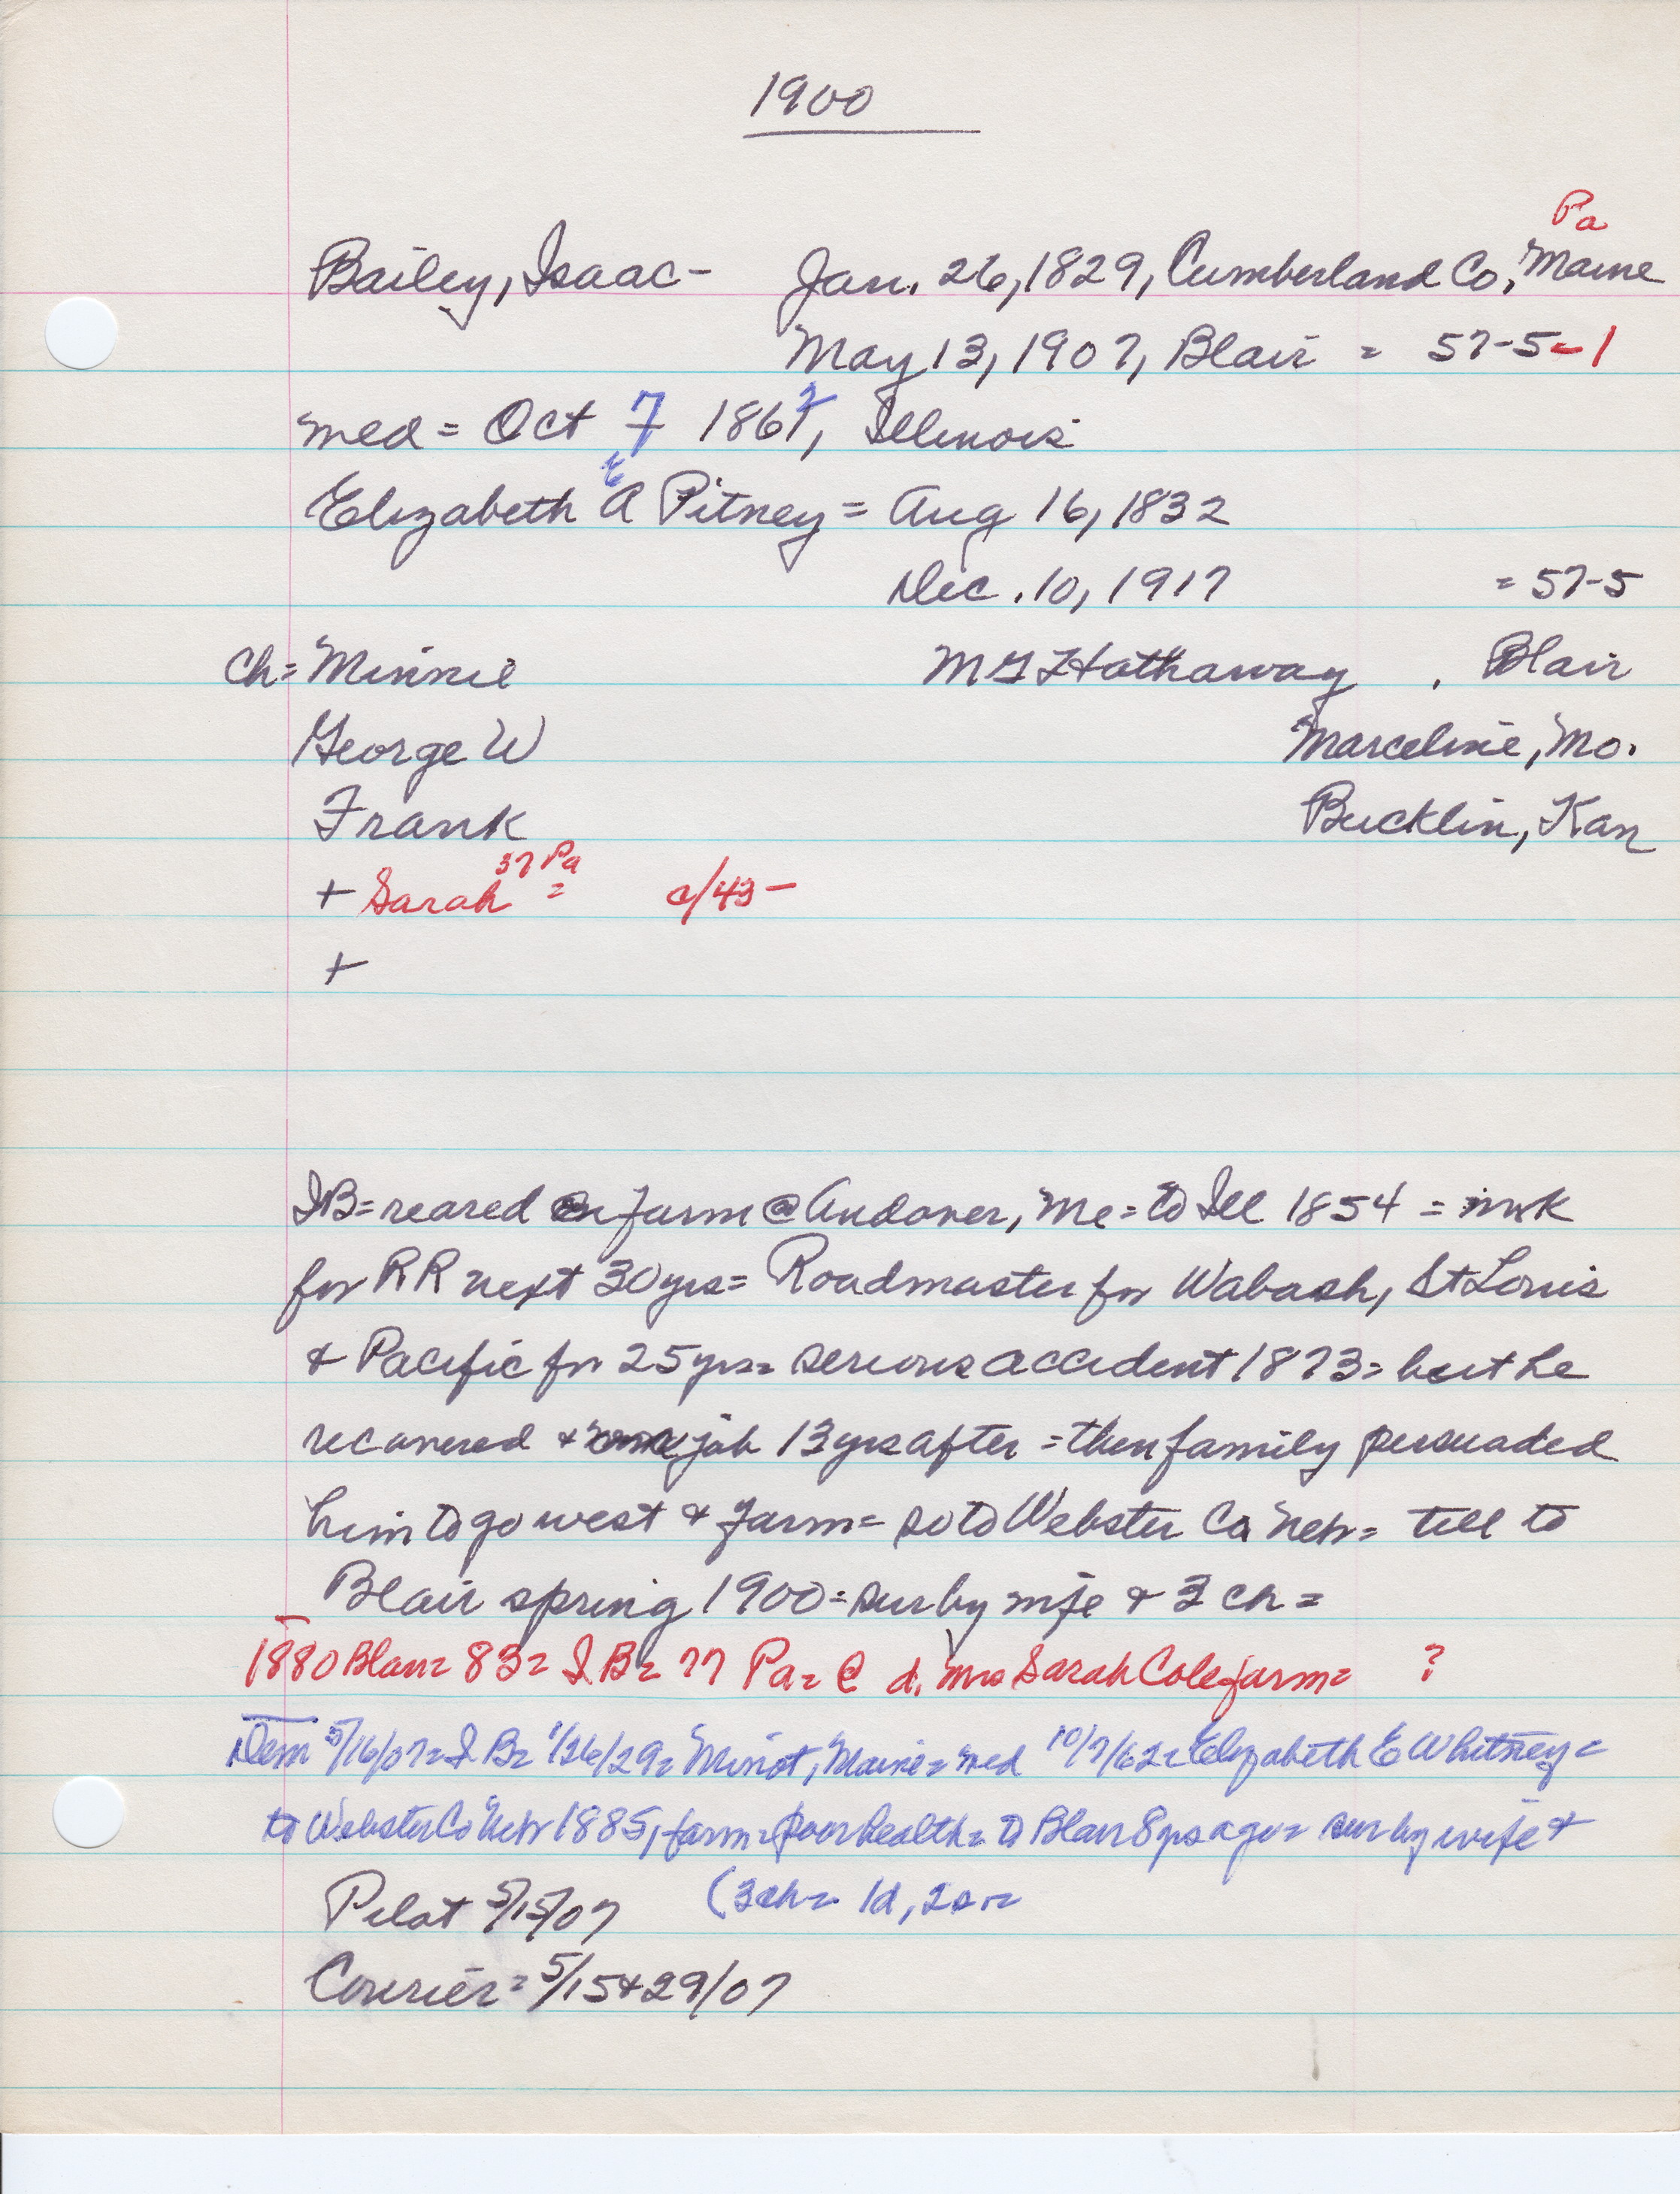 1900
Pa
Bailey, Isaac - Jan. 26, 1829, Cumberland Co, Maine
May 13, 1907, Blair = 57-5-1
med = Oct 7 1862, Illinois
E
Elizabeth A Pitney = Aug 16, 1832
Dec. 10, 1917 = 57-5
Ch = Minnie M G Hathaway, Blair
George W Marceline, Mo.
Frank Bucklin, Kan
37 Pa
+ Sarah = c/43-
+
IB = reared on farm @ Andover, Me = to Ill 1854 = wk
for RR next 30 yrs = Roadmaster for Wabash, St Louis
& Pacific for 25 yrs = serious accident 1873 = but he
recovered & job 13 yrs after = then family persuaded
him to go west & farm = so to Webster Co Neb = till to
Blair spring 1900 = sur by wife & 3 ch =
1880 Blair = 83 = I B = 77 Pa = @ d. Mrs Sarah Cole farm = ?
Dem 5/16/07 = I B = 1/26/29 = Minot, Maine = med 10/7/62 = Elizabeth E Whitney =
to Webster Co Neb 1885, farm = poor health = to Blair 8 yrs ago = sur by wife &
(3 ch = 1d, 2s =
Pilot 5/15/07
Courier = 5/15 & 29/07